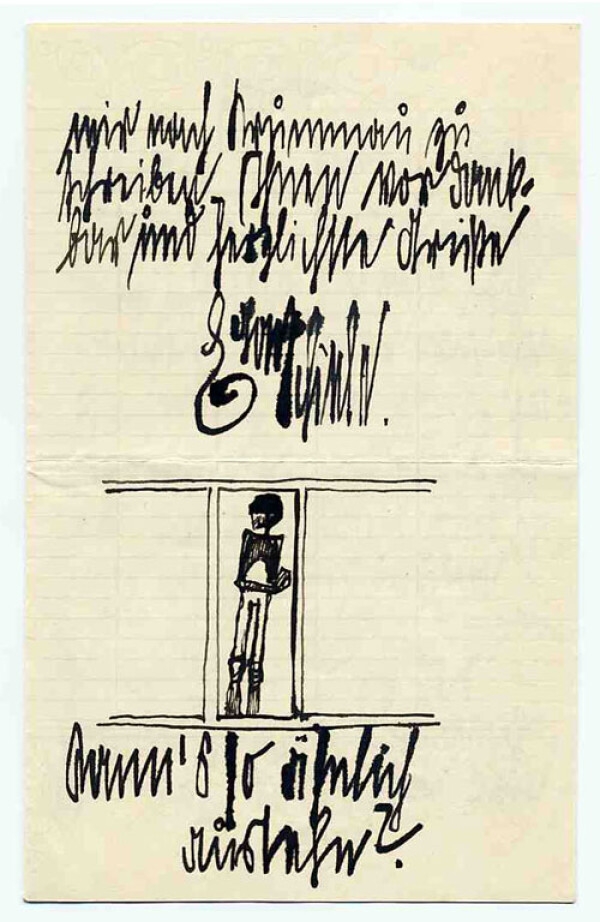 mir nach Krummau zu
schreiben. Ihnen vor Dank-
bar und herzlichste Grüße
Egon Schiele.
Kann's so ähnlich
aussehn?